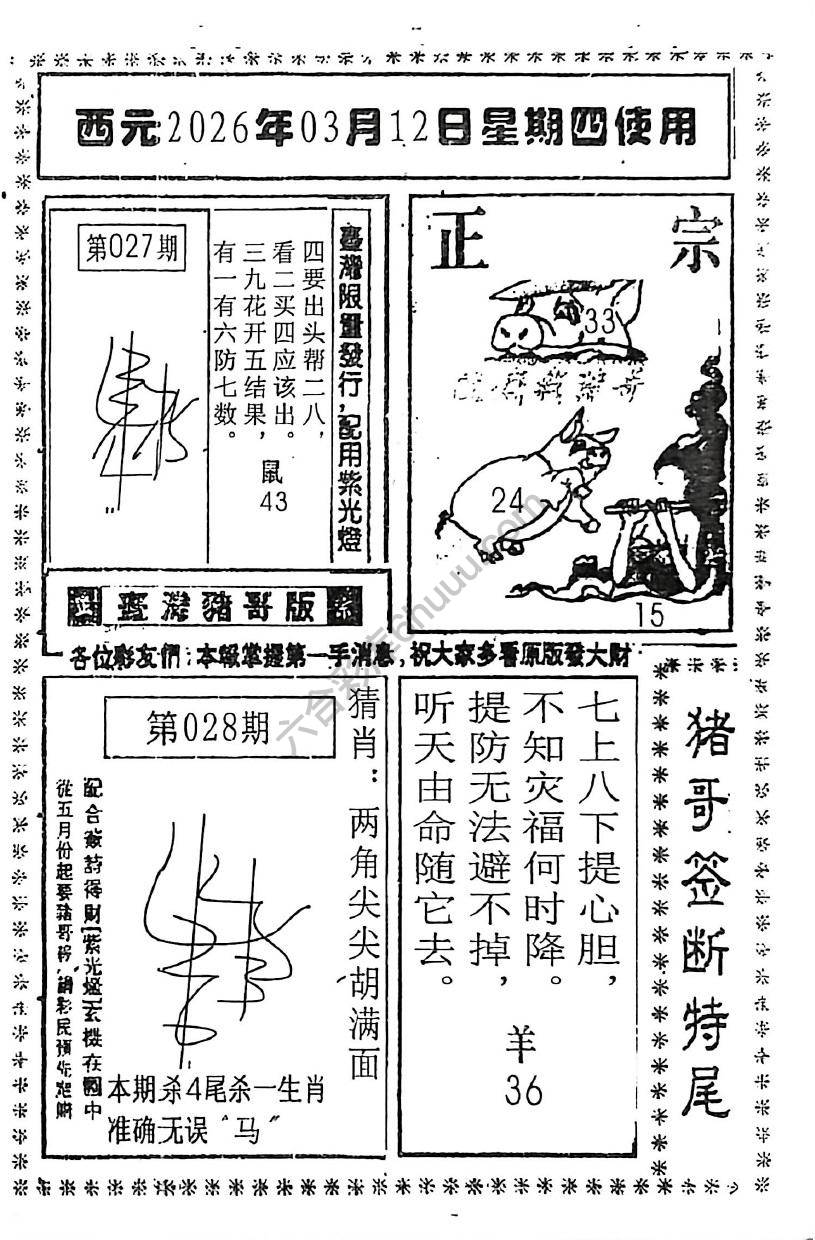 西元2026年03月12日星期四使用
第027期
四要出头帮二八，
看二买四应该出。
三九花开五结果，
有一有六防七数。
鼠
43
臺灣限量發行，配用紫光燈
正宗
33
24
15
臺灣豬哥版
各位彩友們：本報掌握第一手消息，祝大家多看原版發大財
第028期
猜肖：两角尖尖胡满面
配合簽詩得財【紫光燈】玄機在圖中
從五月份起要豬哥報，請彩民預先定購
本期杀4尾杀一生肖
准确无误“马”
七上八下提心胆，
不知灾福何时降。
提防无法避不掉，
听天由命随它去。
羊
36
猪哥签断特尾
六合彩库6huuu.com